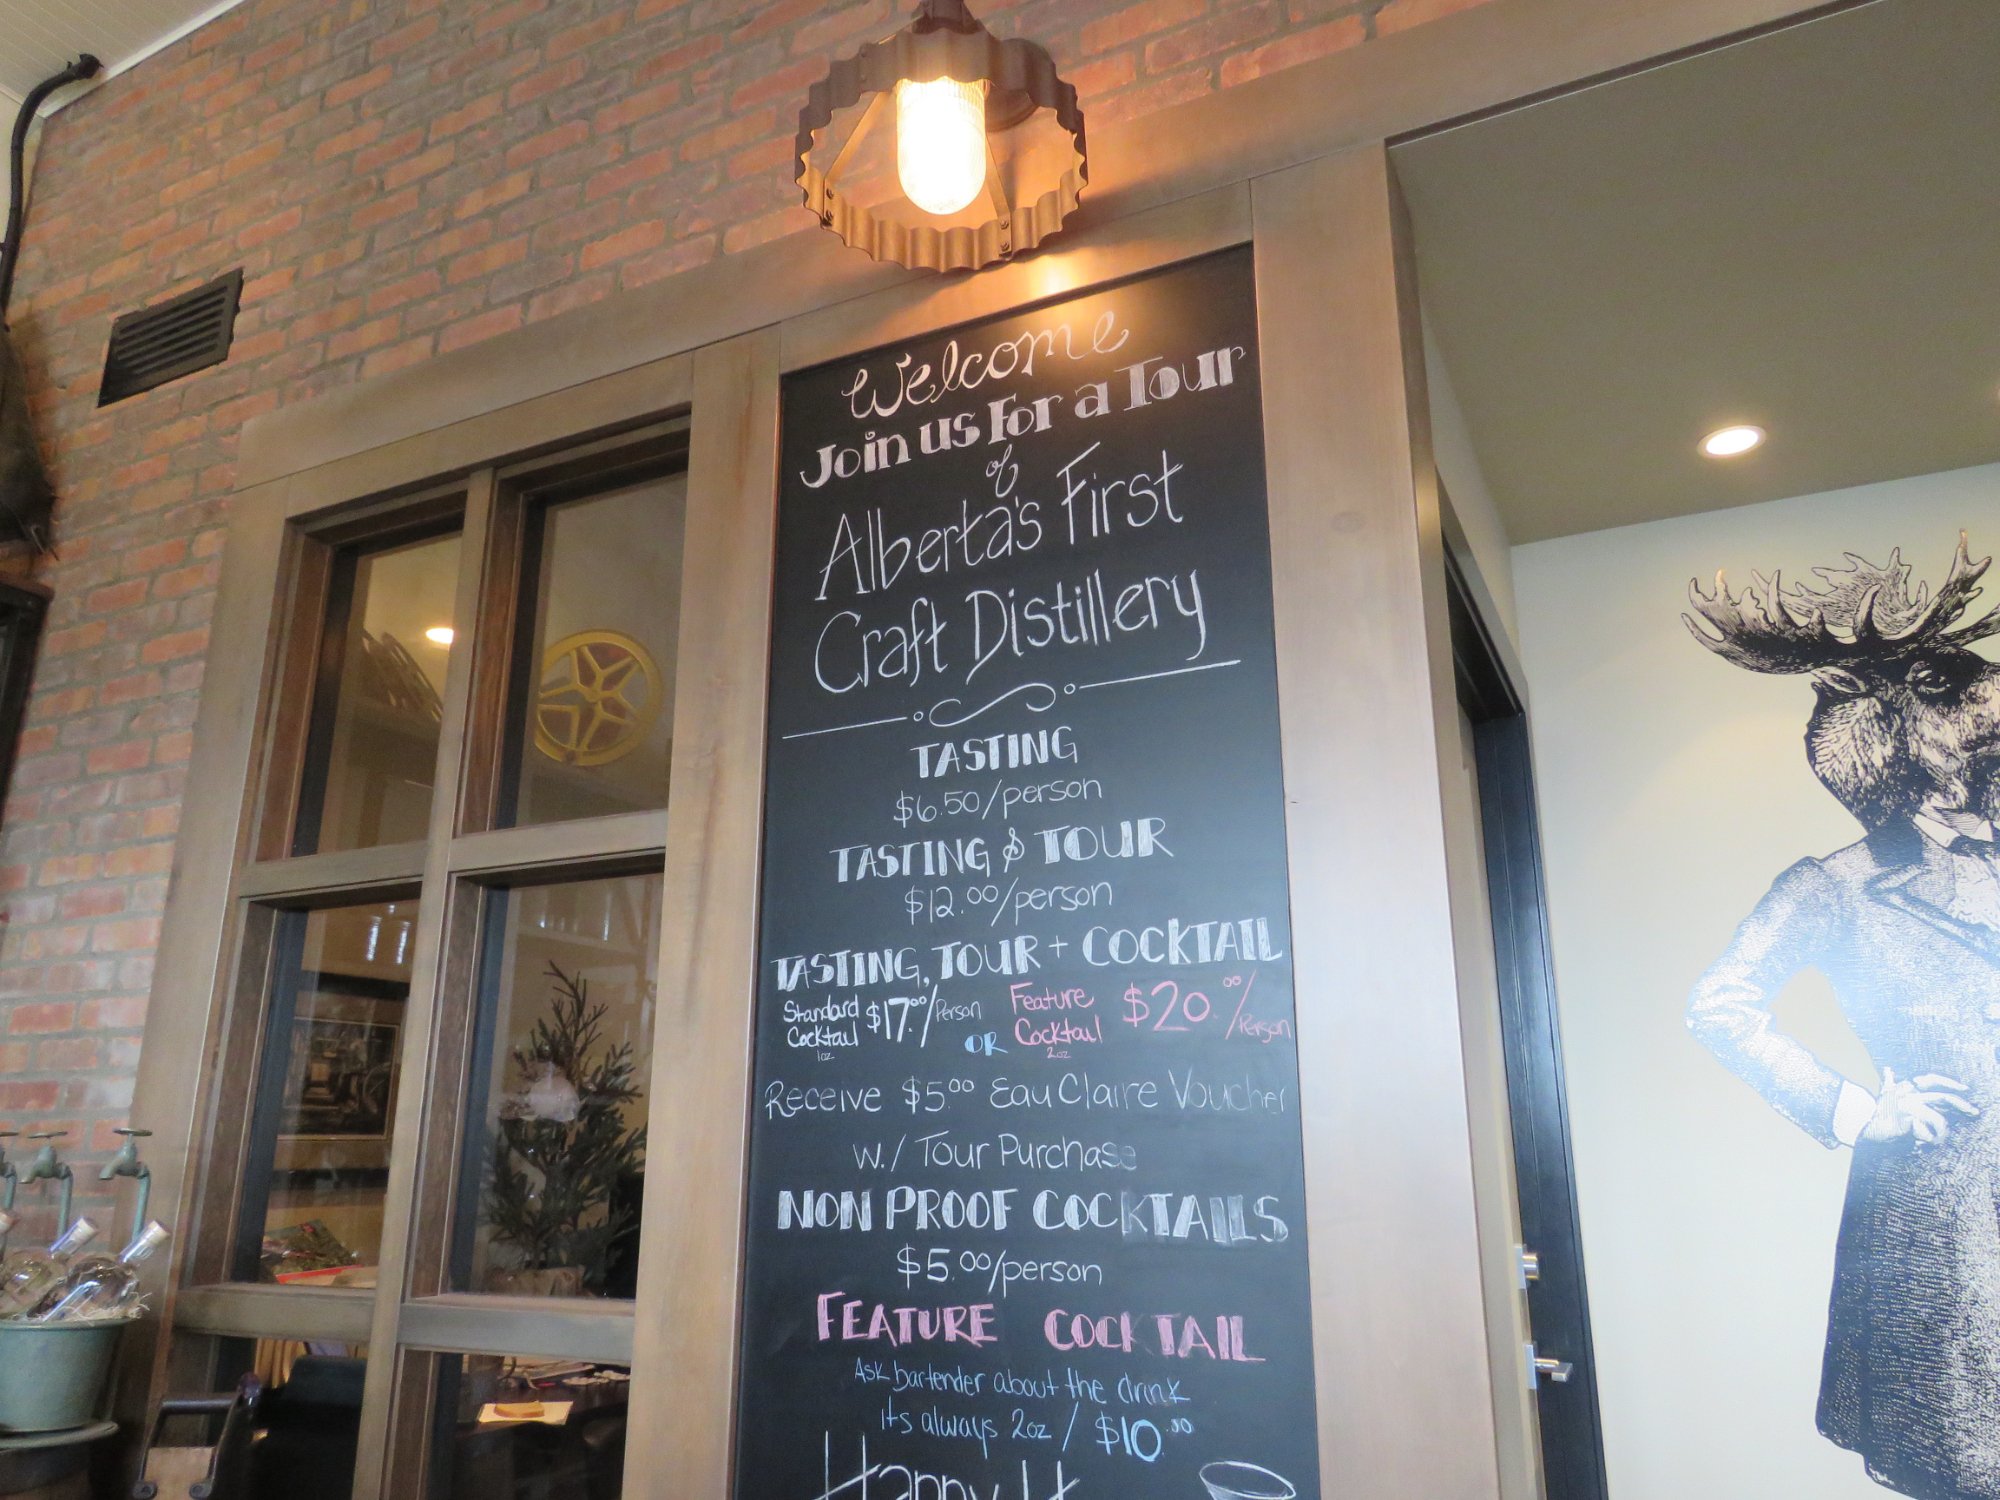 Welcome
Join us For a Tour
of
Alberta's First
Craft Distillery
TASTING
$6.50/person
TASTING & TOUR
$12.00/person
TASTING, TOUR + COCKTAIL
Standard Cocktail 1oz $17.00/Person OR Feature Cocktail 2oz $20.00/Person
Receive $5.00 Eau Claire Voucher
w./ Tour Purchase
NON PROOF COCKTAILS
$5.00/person
FEATURE COCKTAIL
Ask bartender about the drink
its always 2oz / $10.00
Happy